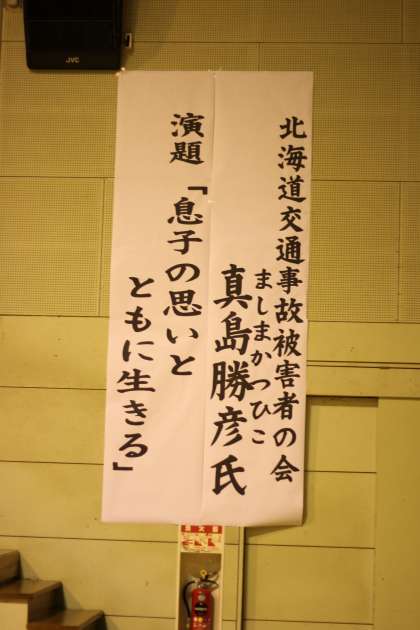 北海道交通事故被害者の会
ましまかつひこ
真島勝彦氏
演題「息子の思いと
ともに生きる」
JVC
消火器